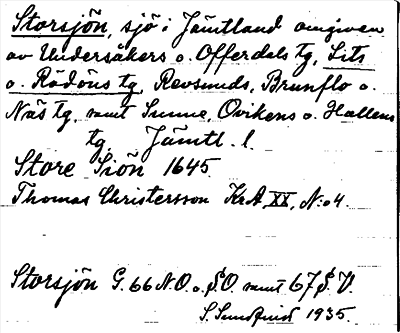 Storsjön, sjö i Jämtland omgiven
av Undersåkers o. Offerdals tg, Lits
o. Rödöns tg, Revsunds, Brunflo o.
Näs tg, samt Sunne, Ovikens o. Hallens
tg, Jämtl. l.
Store Siön 1645
Thomas Christersson KrA, XX, N:o 4.
Storsjön G. 66 N.O. o. S.O. samt 67 S.V.
S. Sundqvist 1935.